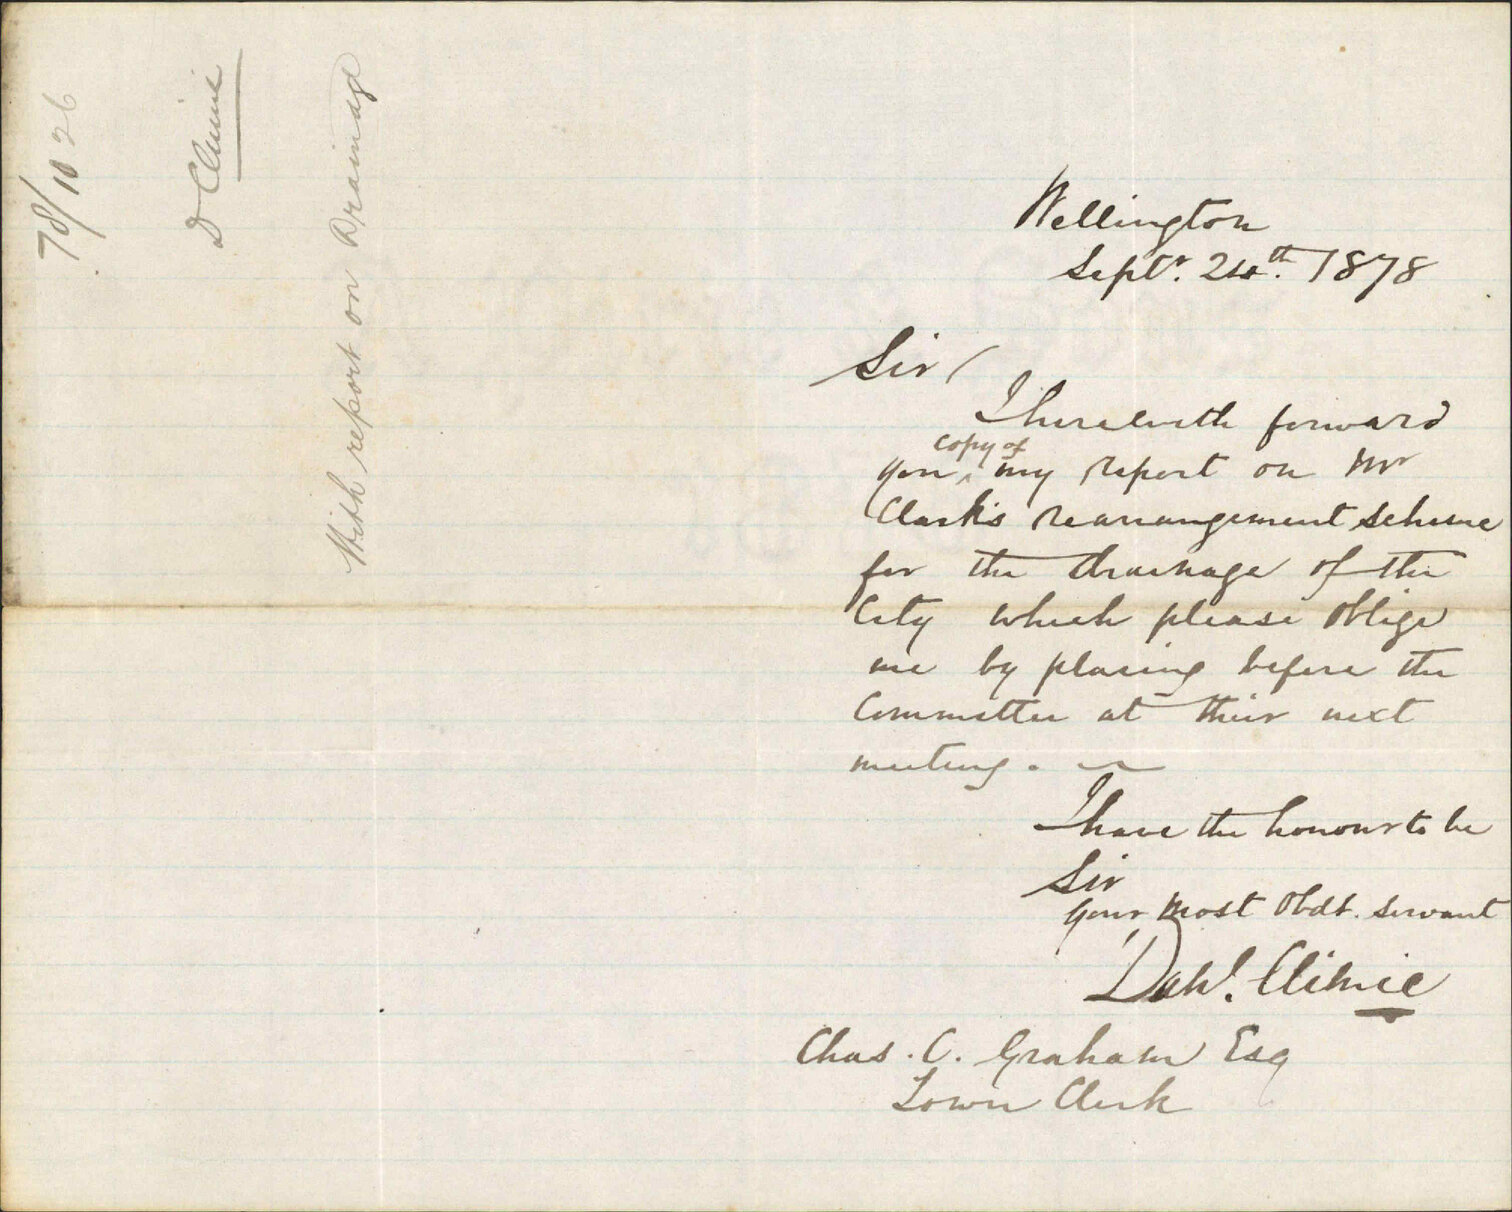 78/1026
D Climie
With report on Drainage
Wellington
Septr. 24th. 1878
Sir
I herewith forward
copy of
you ^ my report on Mr
Clark's rearrangement scheme
for the drainage of the
City which please oblige
me by placing before the
Committee at their next
meeting.
I have the honour to be
Sir
your most Obdt. servant
Danl. Climie
Chas. C. Graham Esq
Town Clerk